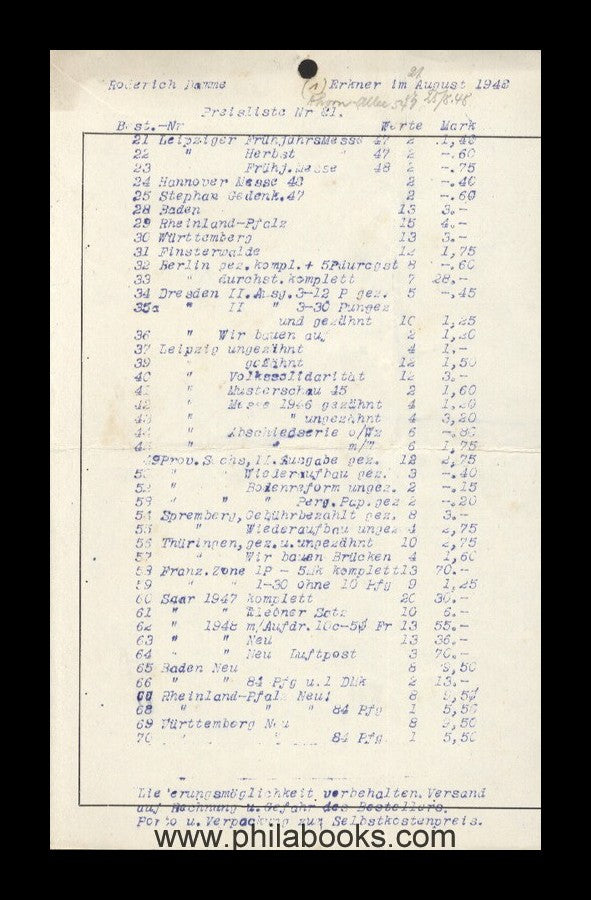 Roderich Damme Erkner im August 1948
(1) 25/8.48
Preisliste Nr 21.
Best.-Nr Werte Mark
21 Leipziger Frühjahrsmesse 47 2 1,45
22 " Herbst " 47 2 -.60
23 Frühj.messe 48 2 -.75
24 Hannover Messe 48 2 -.40
25 Stephan Gedenk.47 2 -.60
28 Baden 13 3.-
29 Rheinland-Pfalz 15 4.-
30 Württemberg 13 3.-
31 Finsterwalde 12 1,75
32 Berlin gez.kompl.+ 5Pdurchst 8 -.60
33 " durchst.komplett 7 28.-
34 Dresden II.Ausg.3-12 P gez. 5 -.45
35a " II " 3-30 Pungez
und gezähnt 10 1,25
36 " Wir bauen auf 2 1,20
37 Leipzig ungezähnt 4 1.-
39 gezähnt 12 1,50
40 " Volkssolidarität 12 3.-
41 " Musterschau 45 2 1,60
42 " Messe 1946 gezähnt 4 1,20
43 " " ungezähnt 4 3,20
44 " Abschiedserie o/Wz 6 -.80
45 " " m/" 6 1,75
49Prov.Sachs,II.Ausgabe gez. 12 2,75
" " Wiederaufbau gez. 3 -.40
52 " " Bodenreform ungez. 2 -.15
53 " " " Perg.Pap.gez 2 -.20
54 Spremberg,Gebührbezahlt gez. 8 3.-
55 " Wiederaufbau ungez 4 2,75
56 Thüringen,gez.u.ungezähnt 10 2,75
57 " Wir bauen Brücken 4 1,60
58 Franz.Zone 1P - 5Mk komplett13 70.-
59 " " 1-30 ohne 10 Pfg 9 1,25
60 Saar 1947 komplett 20 30.-
61 " " kleiner Satz 10 6.-
62 " 1948 m/Aufdr.10c-50 Fr 13 55.-
63 " " Neu 13 36.-
64 " " Neu Luftpost 3 70.-
65 Baden Neu 8 9,50
66 " " 84 Pfg u.1 DMk 2 13.-
67 Rheinland-Pfalz Neu! 8 9,50
68 " " " 84 Pfg 1 5,50
69 Württemberg Neu 8 9,50
70 " " 84 Pfg 1 5,50
Lieferungsmöglichkeit vorbehalten.Versand
auf Rechnung u.Gefahr des Bestellers.
Porto u.Verpackung zum Selbstkostenpreis.
www.philabooks.com